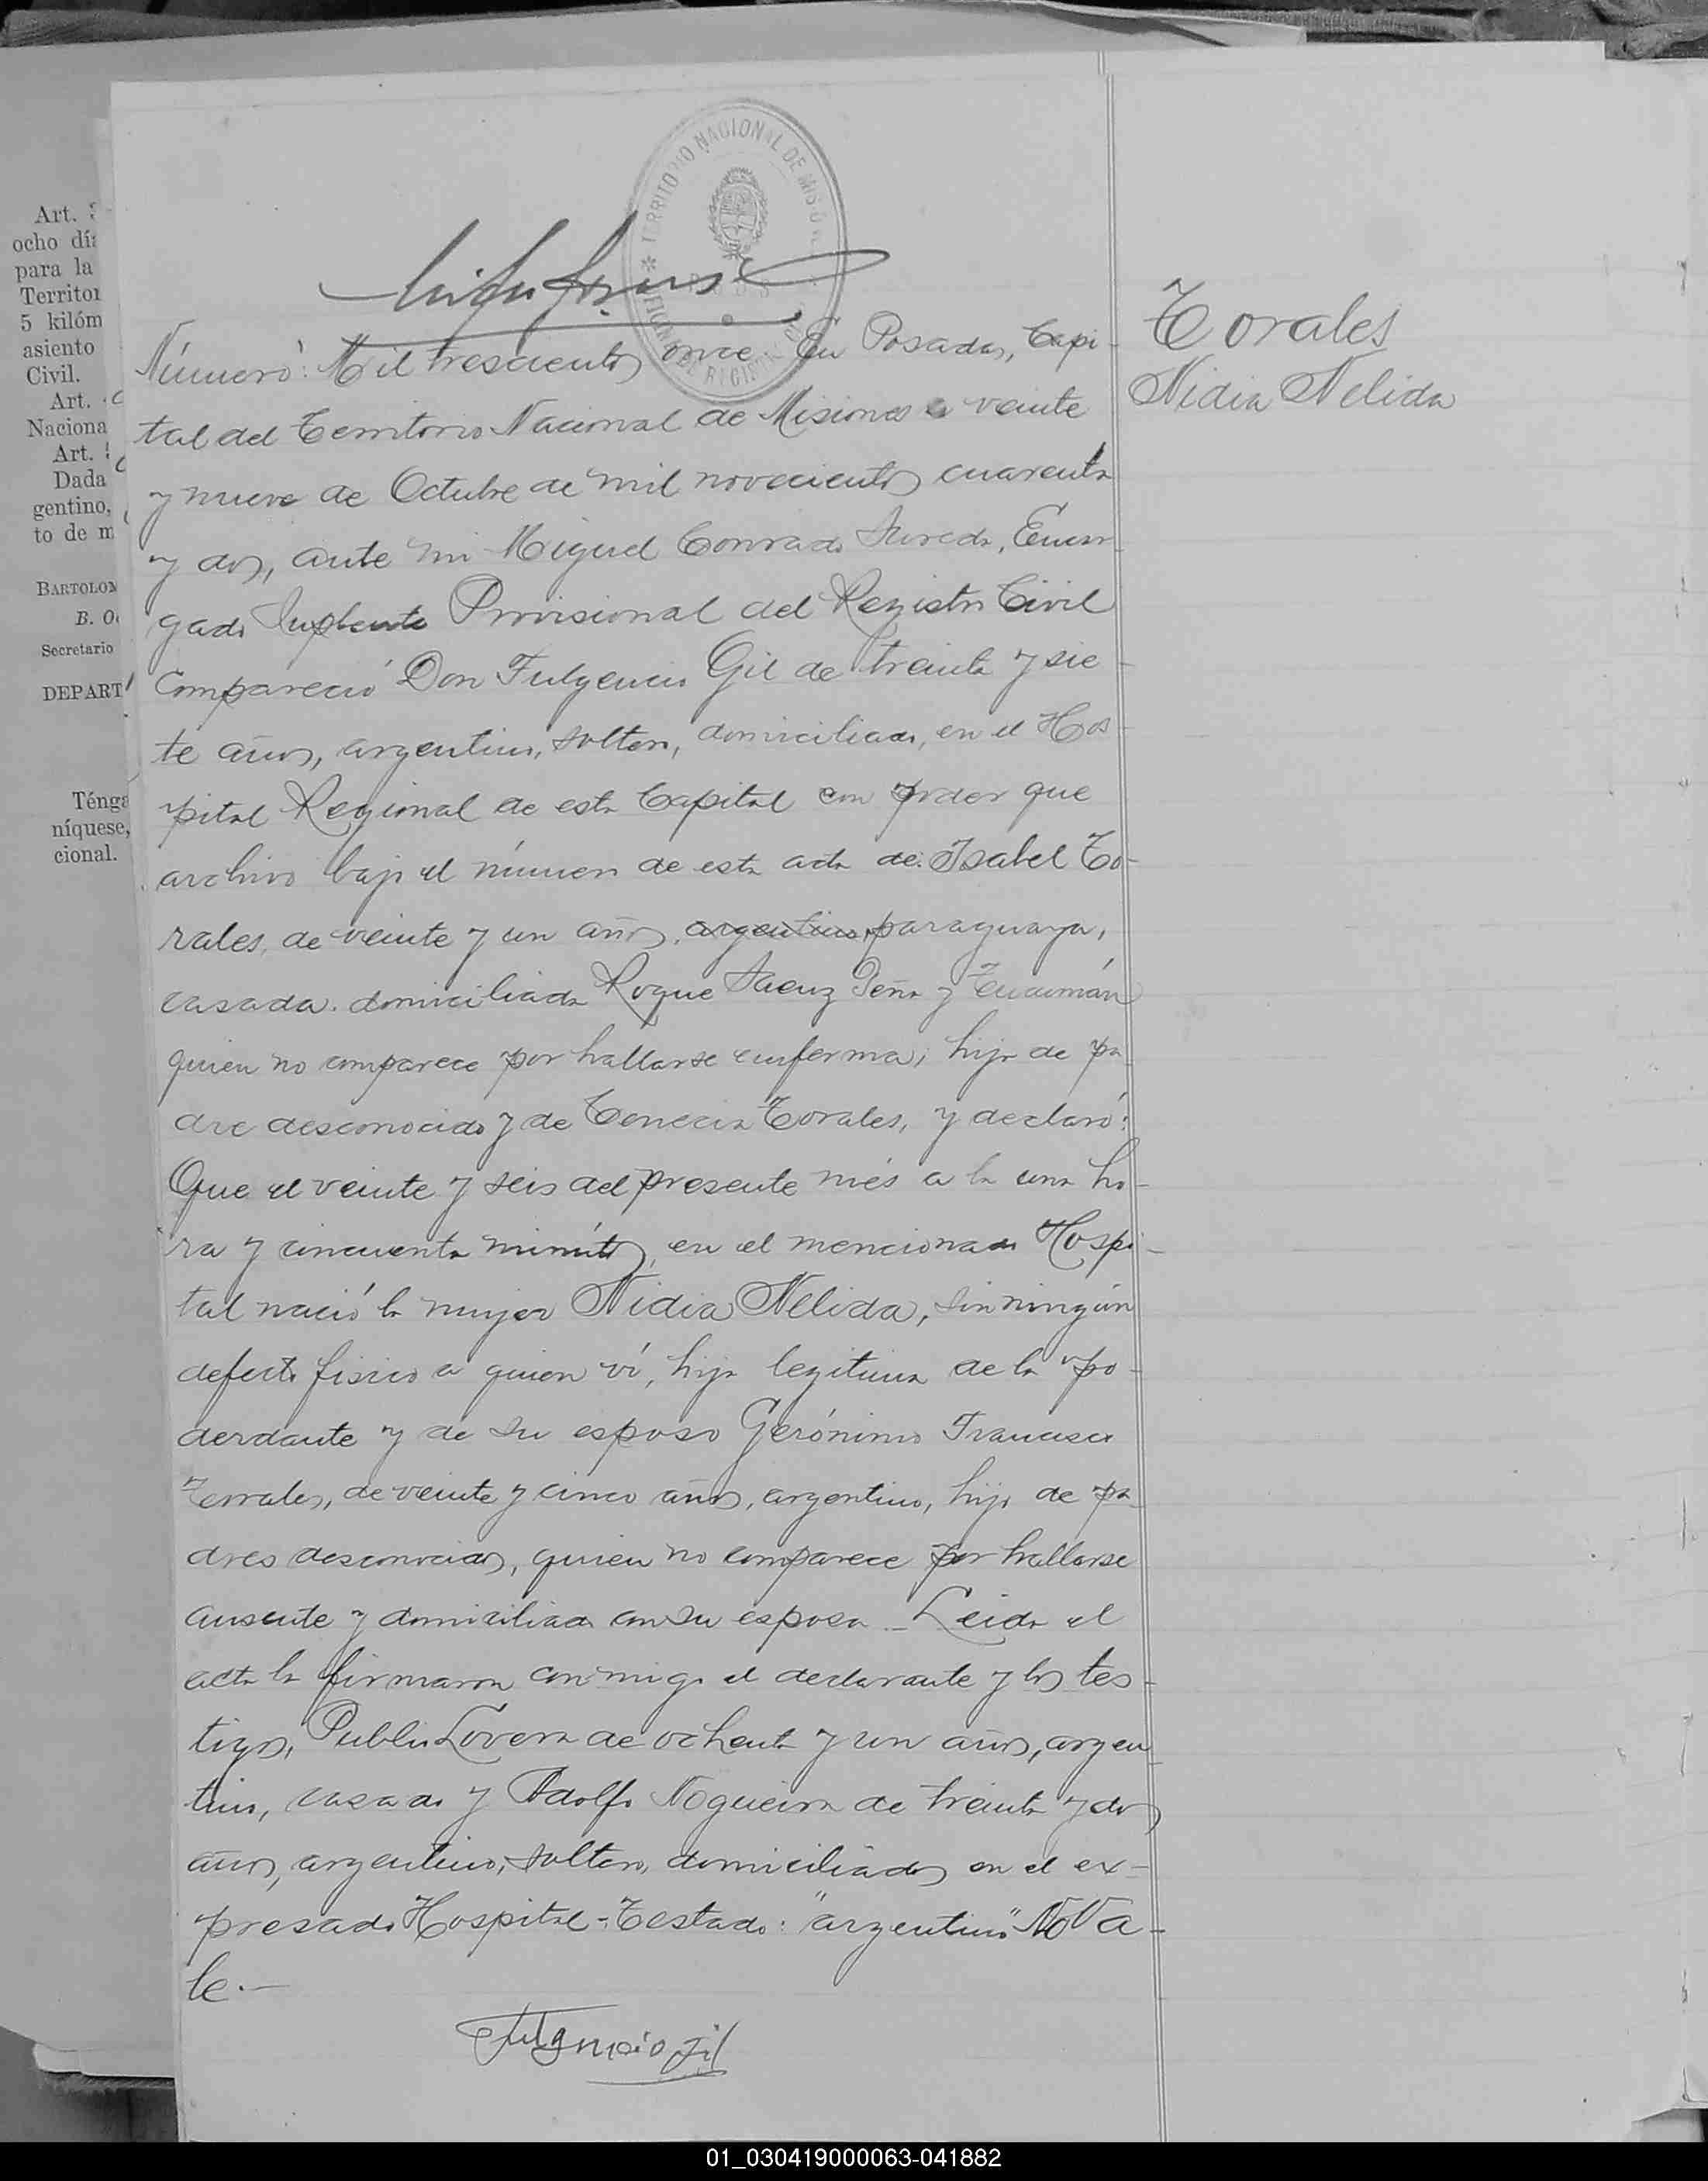 Art.
ocho día
para la
Territor
5 kilóm
asiento
Civil.
Art.
Naciona
Art.
Dada
gentino,
to de m
BARTOLOM
B. O
Secretario
DEPART
Ténga
níquese,
cional.
TERRITORIO NACIONAL DE MISIONES
Número: Mil trescientos once En Posadas, Capi-
tal del Territorio Nacional de Misiones a veinte
y nueve de Octubre de mil novecientos cuarenta
y dos, ante mi Miguel Conrado Sureda, Encar-
gado Suplente Provisional del Registro Civil
compareció Don Fulgencio Gil de treinta y sie-
te años, argentino, soltero, domiciliado, en el Hos-
pital Regional de esta Capital con poder que
archivo bajo el número de esta acta de Isabel To-
rales, de veinte y un años, argentino, paraguaya,
casada. domiciliada Roque Saenz Peña y Tucumán
quien no comparece por hallarse enferma, hija de pa-
dre desconocido y de Torales, y declaró:
Que el veinte y seis del presente més a la una ho-
ra y cincuenta minutos, en el mencionado Hospi-
tal nació la mujer Nidia Nelida, sin ningún
defecto fisico a quien ví, hija legitima de la po-
derdante y de su esposo Gerónimo Francisco
Torrales, de veinte y cinco años, argentino, hijo de pa-
dres desconocidos, quien no comparece por hallarse
ausente y domiciliado con su esposa - Leida el
acta la firmaron conmigo el declarante y los tes-
tigos, Publio Lovera de ochenta y un años, argen-
tino, casado y Adolfo Nogueira de treinta y dos
años, argentino, soltero, domiciliados en el ex-
presado Hospital - Testado: "argentino" No Va-
le.-
Fulgencio Gil
Torales
Nidia Nelida
01_030419000063-041882